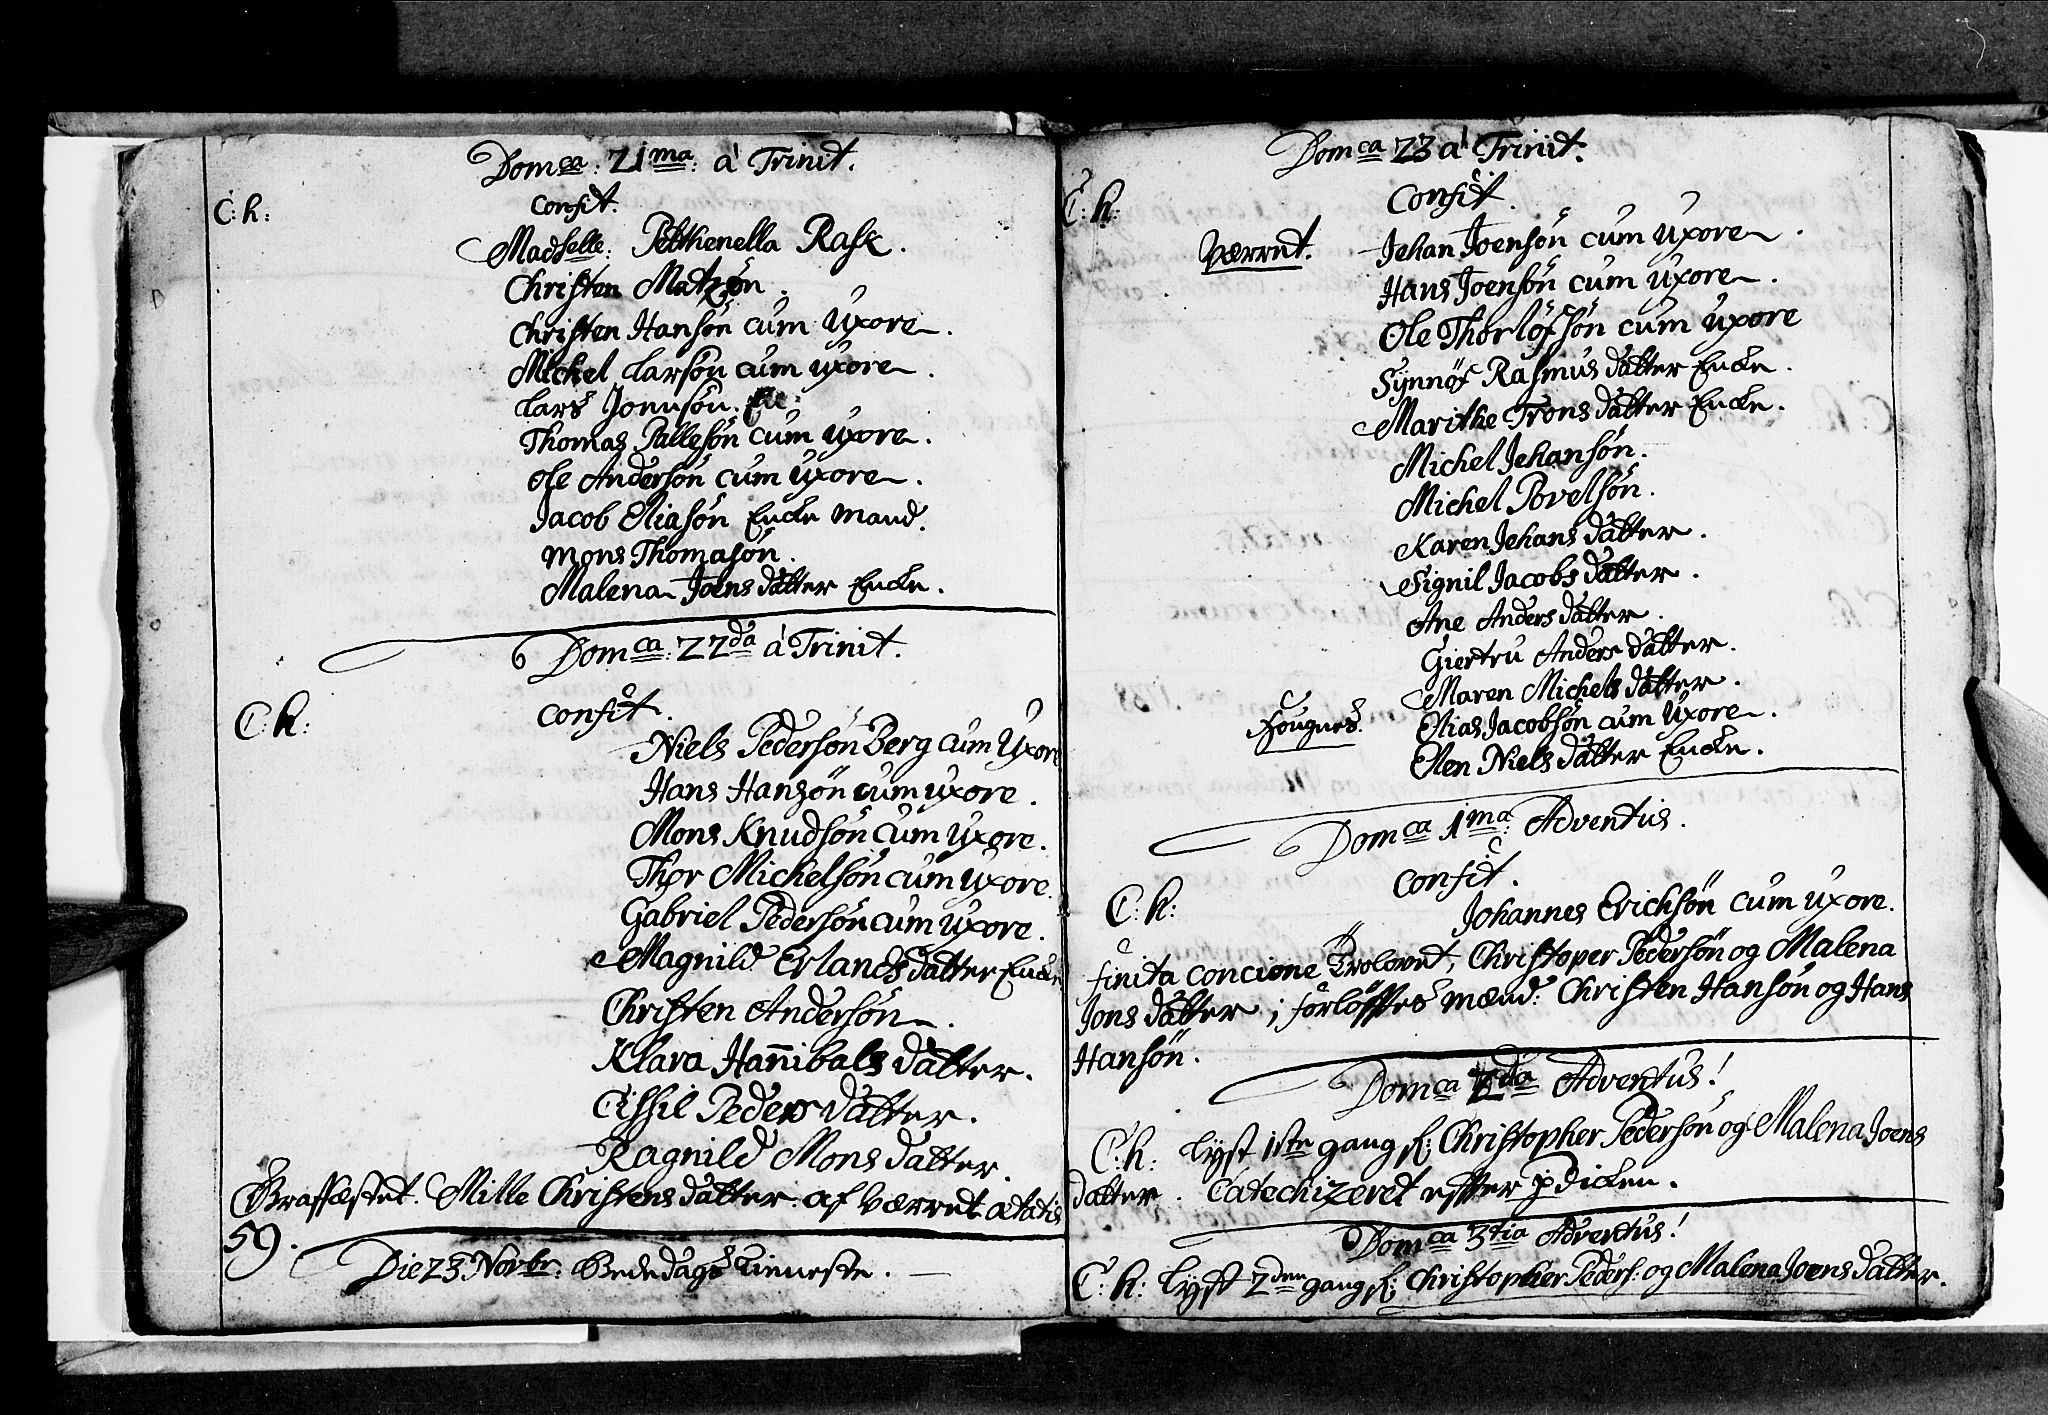 Domca: 21ma: à Trinit.
C: h:
Confit.
Madselle: Petthenella Rask.
Christen Matzøn.
Christen Hansøn cum Uxore.
Michel Larsøn cum uxore.
Lars Jonnsøn.
Thomas Pallesøn cum uxore.
Ole Andersøn cum uxore.
Jacob Eliasøn Encke Mand.
Mons Thomasøn.
Malena Joens datter Encke.
Domca: 22da à Trinit.
C: h:
Confit.
Niels Pedersøn Berg cum Uxore
Hans Hansøn cum uxore.
Mons Knudsøn cum uxore.
Thor Michelsøn cum uxore.
Gabriel Pedersøn cum uxore.
Magnild Erlands datter Encke
Christen Andersøn.
Klara Hañibals datter.
Cissil Peders datter.
Ragnild Mons datter.
Graffæstet. Mille Christens datter. af Værret ætatis
59.
Die 23 Novbr: Bededags Tieneste.
Domca 23 à Trinit:
C: h:
Confit.
Værret. Jehan Joensøn cum uxore.
Hans Joensøn cum uxore.
Ole Thorlöfsøn cum uxore
Synnøf Rasmus datter Encke.
Marithe Trons datter Encke.
Michel Jehansøn.
Michel Povelsøn.
Karen Jehans datter.
Signil Jacobs datter.
Ane Anders datter.
Giertru Anders datter.
Maren Michels datter.
Fougnes. Elias Jacobsøn cum uxore.
Elen Niels datter Encke.
Domca 1ma: Adventus.
Confit.
C: h:
Johannes Erichsøn cum uxore.
finita concione Trolovet, Christoper Pedersøn og Malena
Jons datter; forløfftes mænd: Christen Hansøn og Hans
Hansøn.
Domca 2da Adventus!
C: h: lyst 1ste gang f: Christopher Pedersøn og Malena Joens
datter. Catechizeret effter pdicken.
Domca 3tia Adventus!
C: h: lyst 2den gang f: Christopher Peders: og Malena Joens datter.